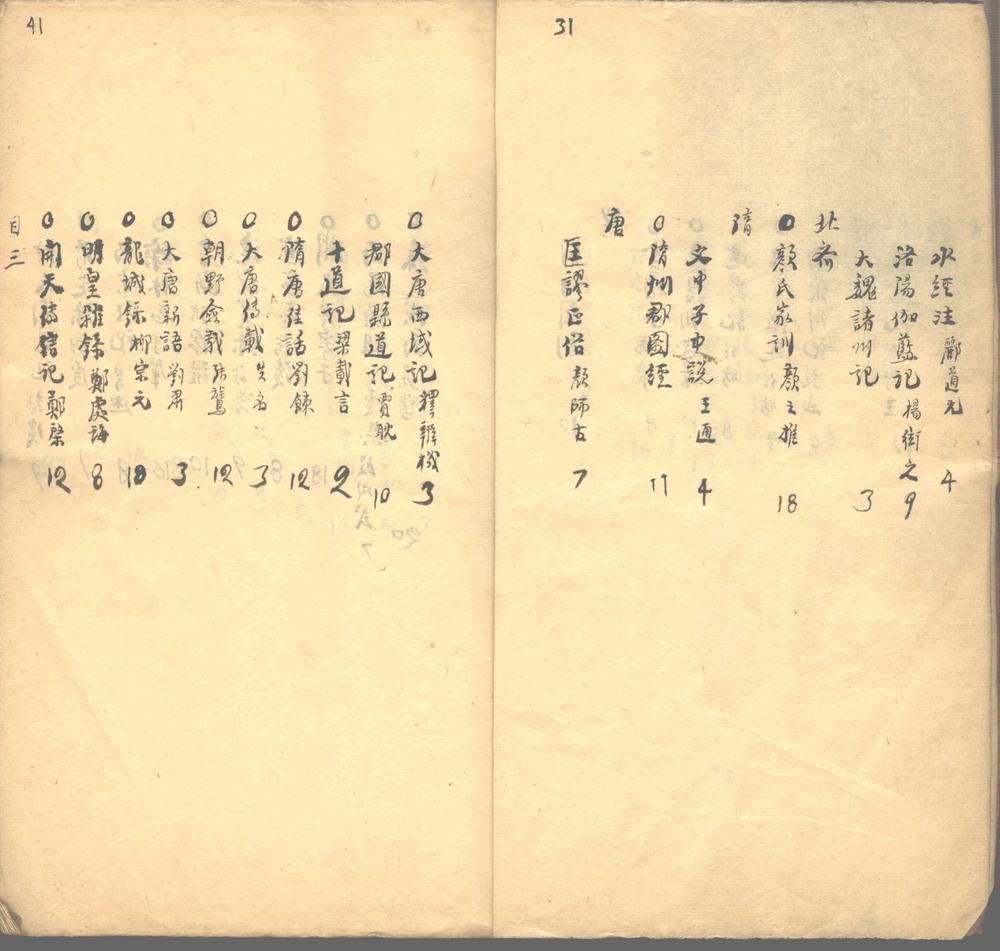 31
水經注 酈道元 4
洛陽伽藍記 楊衒之 9
大魏諸州記 3
北齊
O 顏氏家訓 顏之推 18
隋
文中子中說 王通 4
O 隋州郡圖經 11
唐
匡謬正俗 顏師古 7
41
O 大唐西域記 釋辨機 3
郡國縣道記 賈耽 10
十道記 梁載言 2
O 隋唐佳話 劉餗 12
O 大唐傳載 失名 3
O 朝野僉載 張鷟 12
O 大唐新語 劉肅 3
O 龍城錄 柳宗元 18
O 明皇雜錄 鄭處誨 8
O 開天傳信記 鄭棨 12
目三